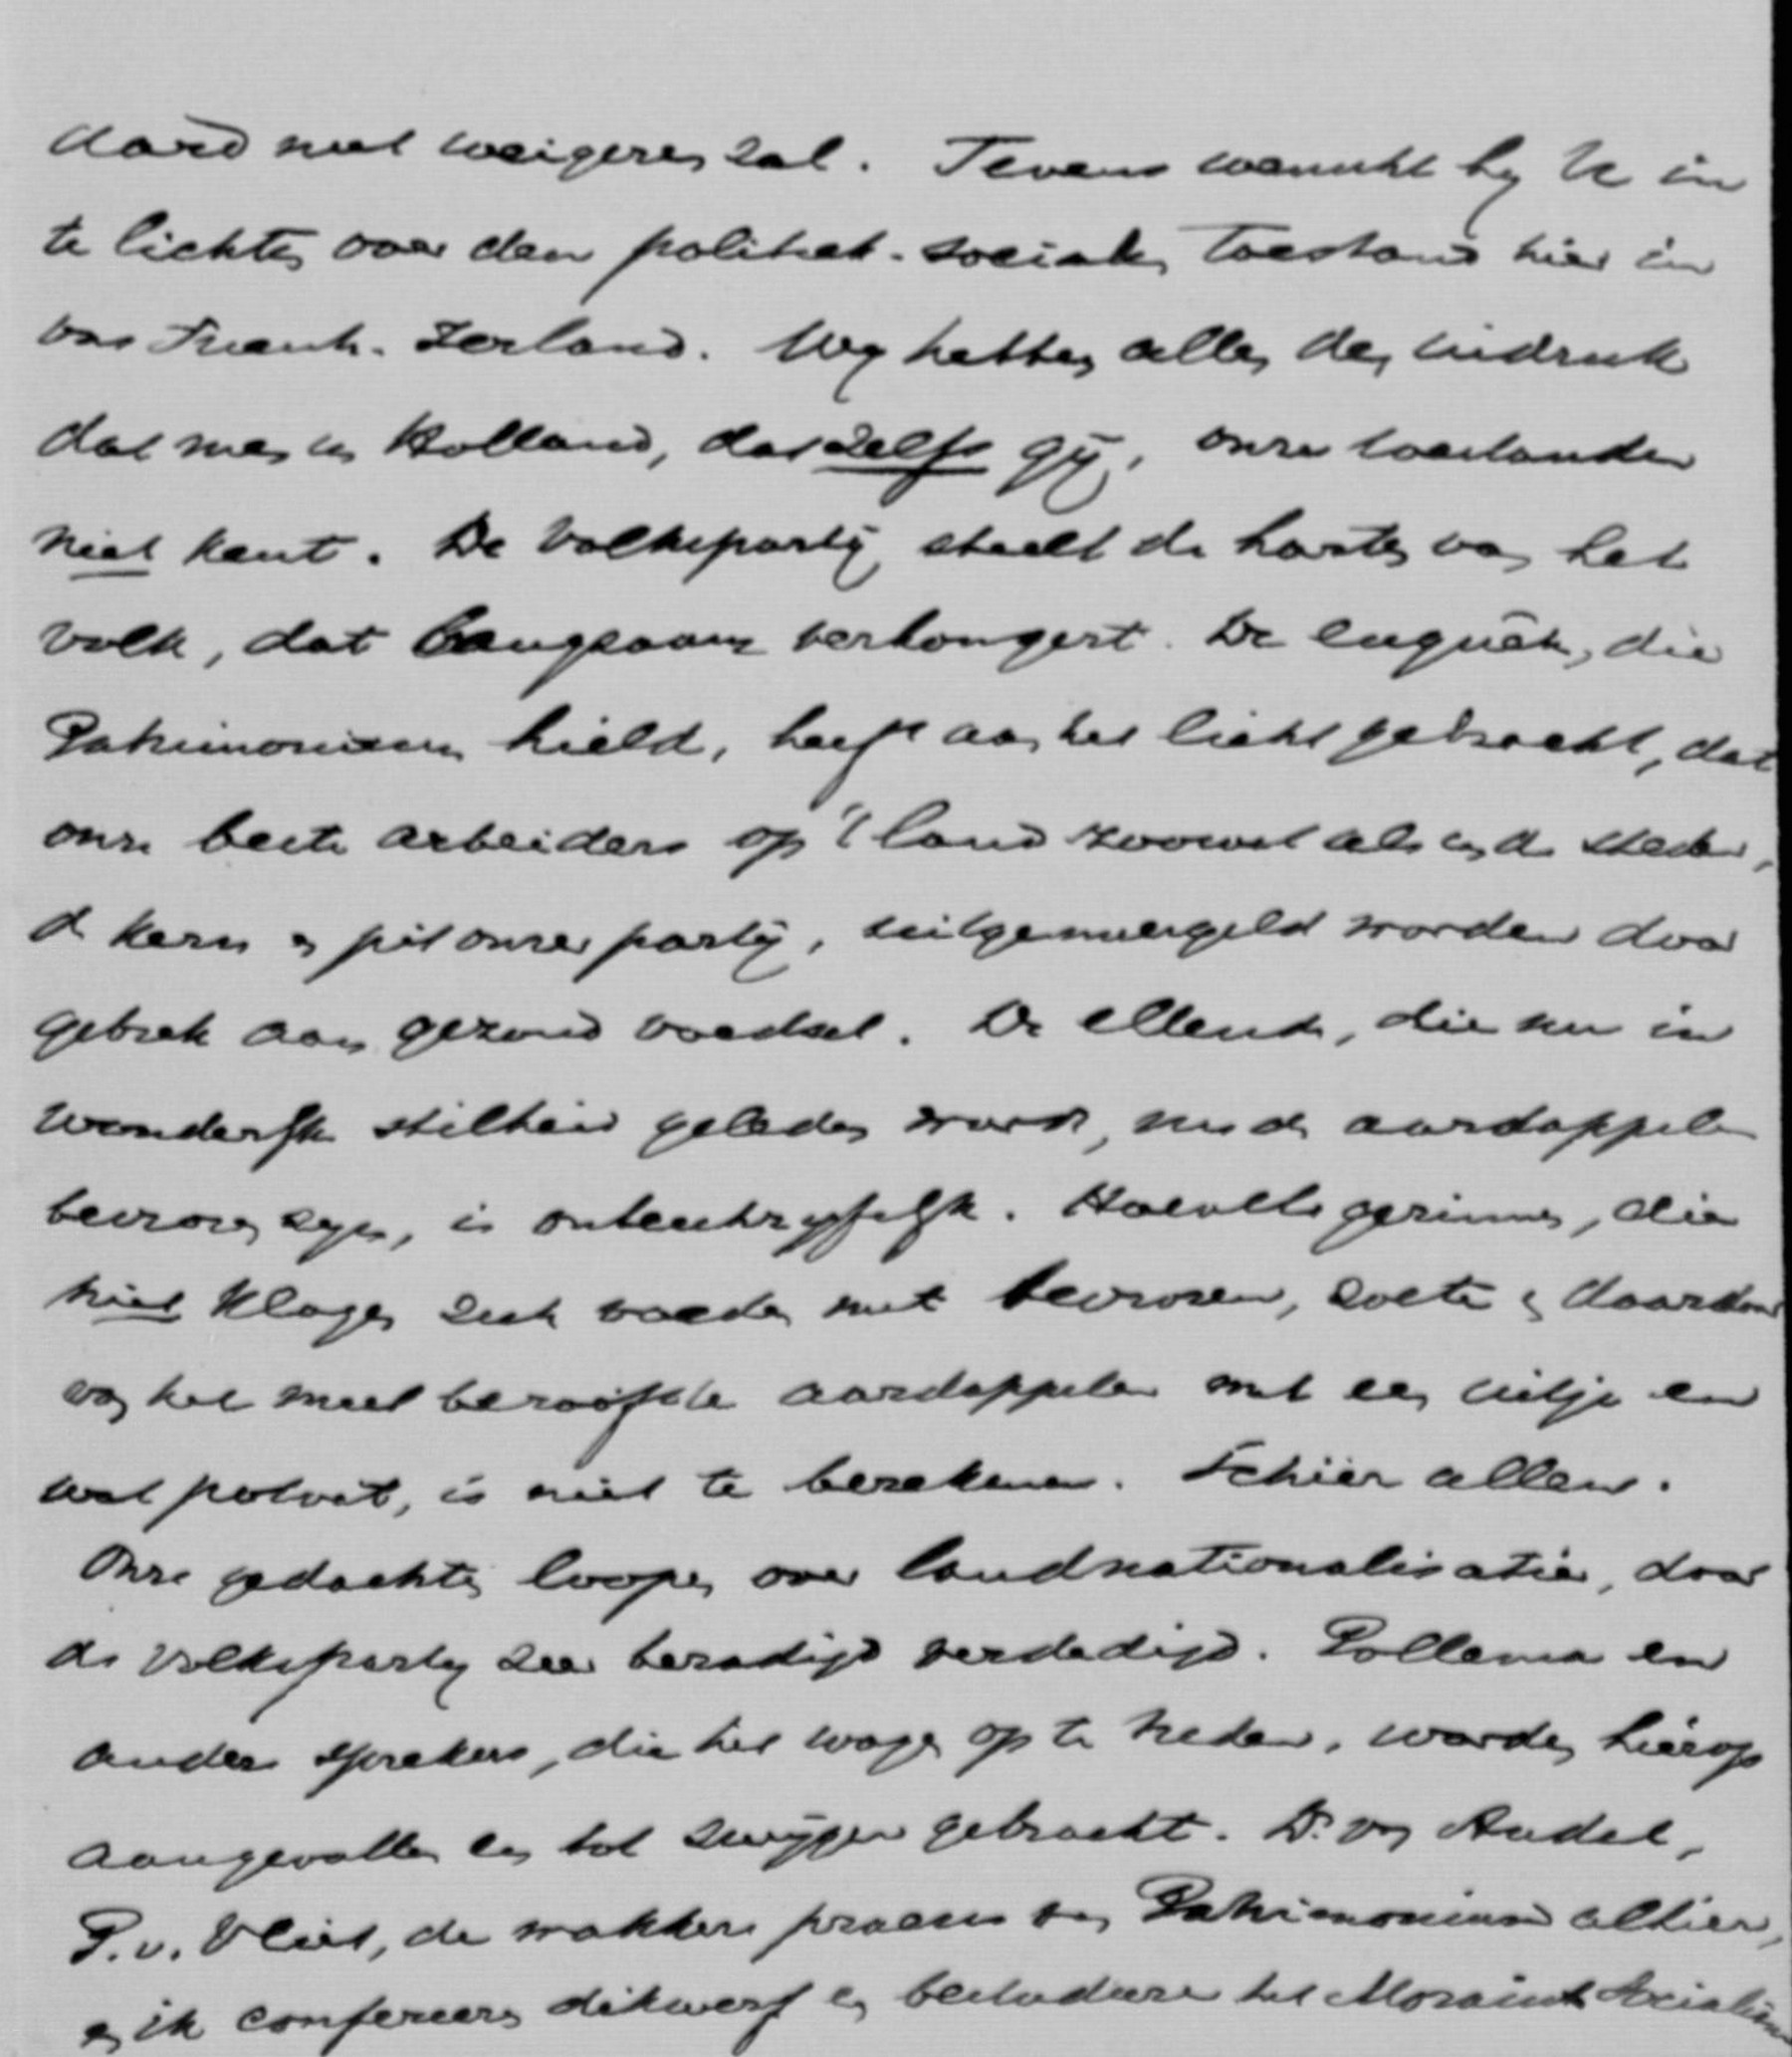 daard niet weigeren zal. Tevens wenscht hy U in
te lichten over den politiek-socialen toestand hier in
ons Friesch-Zerland. Wy hebben allen den indruk
dat men in Holland, dat zelfs gij, onze toestanden
niet kent. De Volkspartij steelt de harten van het
volk, dat langzaam verhongert. De enquête, die
Patrimonium hield, heeft aan het licht gebracht, dat
onze beste arbeiders op 't land zoowel als in de steden,
de kern en pit onzer partij, uitgemergeld worden door
gebrek aan gezond voedsel. De ellende, die nu in
wonderlyke stilheid geleden wordt, nu de aardappelen
bevroren zyn, is onbeschryfelyk. Hoevele gezinnen, die
niet klagen zich voeden met bevroren, zoete en daardoor
van het meel beroofde aardappelen met een uitje en
wat potvet, is niet te berekenen. Schier allen.
Onze gedachten loopen over landnationalisatie, door
de Volksparty zeer beradigd verdedigd. Pollema en
andere sprekers, die het wagen op te treden, worden hierop
aangevallen en tot zwijgen gebracht. Dr. van Andel,
P. v. Vliet, de wakkere praeses van Patrimonium alhier,
en ik confereeren dikwerf en bestudeeren het Mozaïsch Socialisme